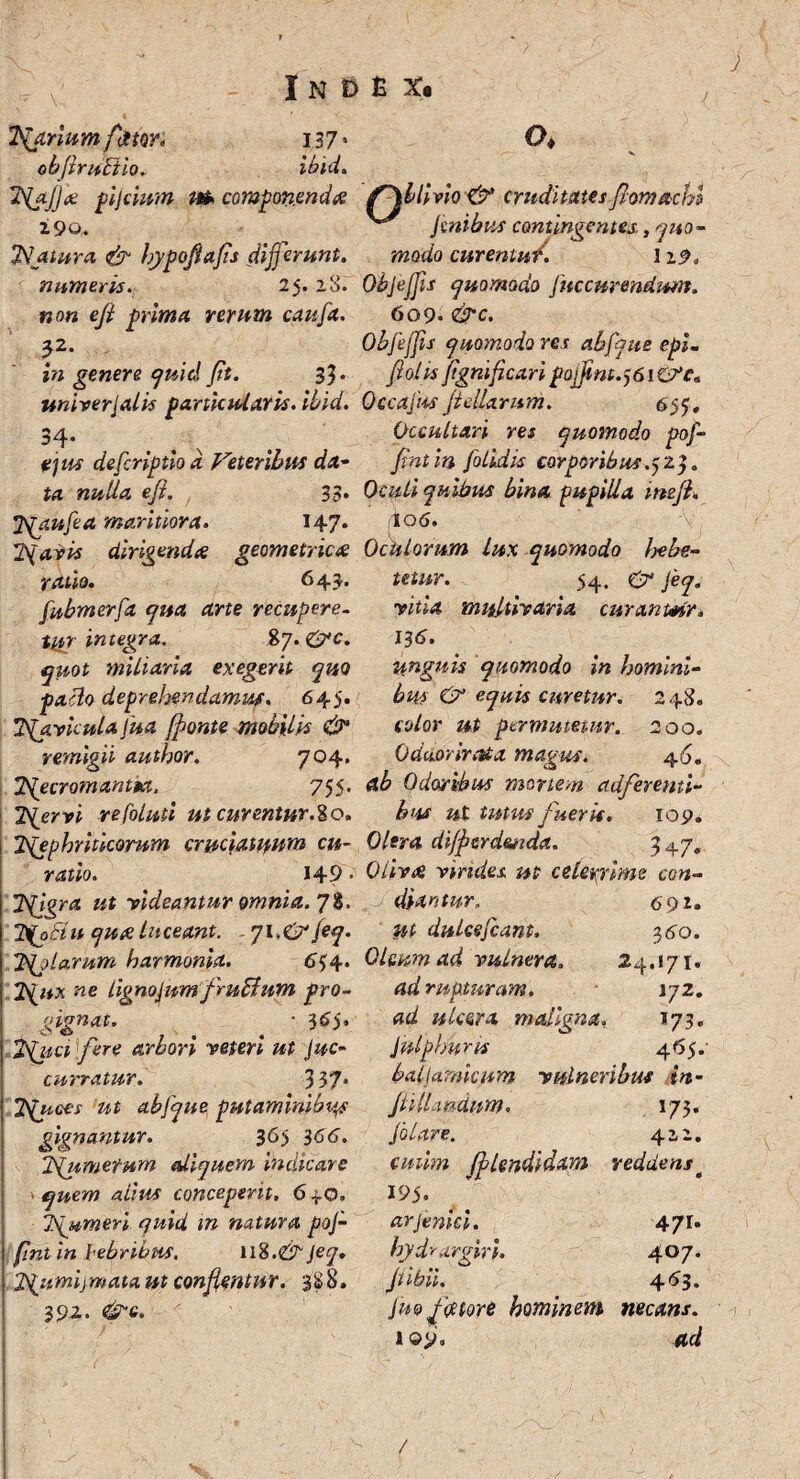 INDEX.
Narium fœtor. 137.
obſtructio. ibid.
Naſſæ piſcium ut componendæ
290.
Natura & hypoſtaſis differunt.
numeris. 25. 28.
non eſt prima rerum cauſa.
32.
in genere quid ſit. 33.
univerſalis particularis. ibid.
34.
ejus deſcriptio à Veteribus da-
ta nulla eſt. 33.
Nauſea maritiora. 147.
Navis dirigendæ geometricæ
ratio. 643.
ſubmerſa qua arte recupere-
tur integra. 87. &c.
quot miliaria exegerit quo
pacto deprehendamus. 645.
Navicula ſua ſponte mobilis &
remigii author. 704.
Necromantia. 755.
Nervi reſoluti ut curentur. 80.
Nephriticorum cruciatuum cu-
ratio. 149.
Nigra ut videantur omnia. 78.
Noctu quæ luceant. 71. & ſeq.
Nolarum harmonia. 654.
Nux ne lignoſum fructum pro-
gignat. 365.
Nuci fere arbori veteri ut ſuc-
curratur. 337.
Nuces ut abſque putaminibus
gignantur. 365 366.
Numerum aliquem indicare
quem alius conceperit. 640.
Numeri quid in natura poſ-
ſint in febribus. 118. & ſeq.
Numiſmata ut conflentur. 388.
392. &c.
O.
Oblivio & cruditates ſtomachi
ſenibus contingentes, quo-
modo curentur. 129.
Objeſſis quomodo ſuccurendum.
609. &c.
Obſeſſis quomodo res abſque epi-
ſtolis ſignificari poſſint. 561 &c.
Occaſus ſtellarum. 655.
Occultari res quomodo poſ-
ſint in ſolidis corporibus. 523.
Oculi quibus bina pupilla ineſt.
106.
Oculorum lux quomodo hebe-
tetur. 54. & ſeq.
vitia multivaria curantur.
136.
unguis quomodo in homini-
bus & equis curetur. 248.
color ut permutetur. 200.
Odoorirata magus. 46.
ab Odoribus mortem adferenti-
bus ut tutus fueris. 109.
Olera diſperdenda. 347.
Olivæ virides ut celerrime con-
diantur. 692.
ut dulceſcant. 360.
Oleum ad vulnera. 24. 171.
ad rupturam. 172.
ad ulcera maligna. 173.
ſulphuris 465.
balſamicum vulneribus in-
ſtillandum. 173.
ſolare. 422.
cutim ſplendidam reddens.
195.
arſenici. 471.
hydrargiri. 407.
ſtibii. 463.
ſuo fœtore hominem necans.
109. ad